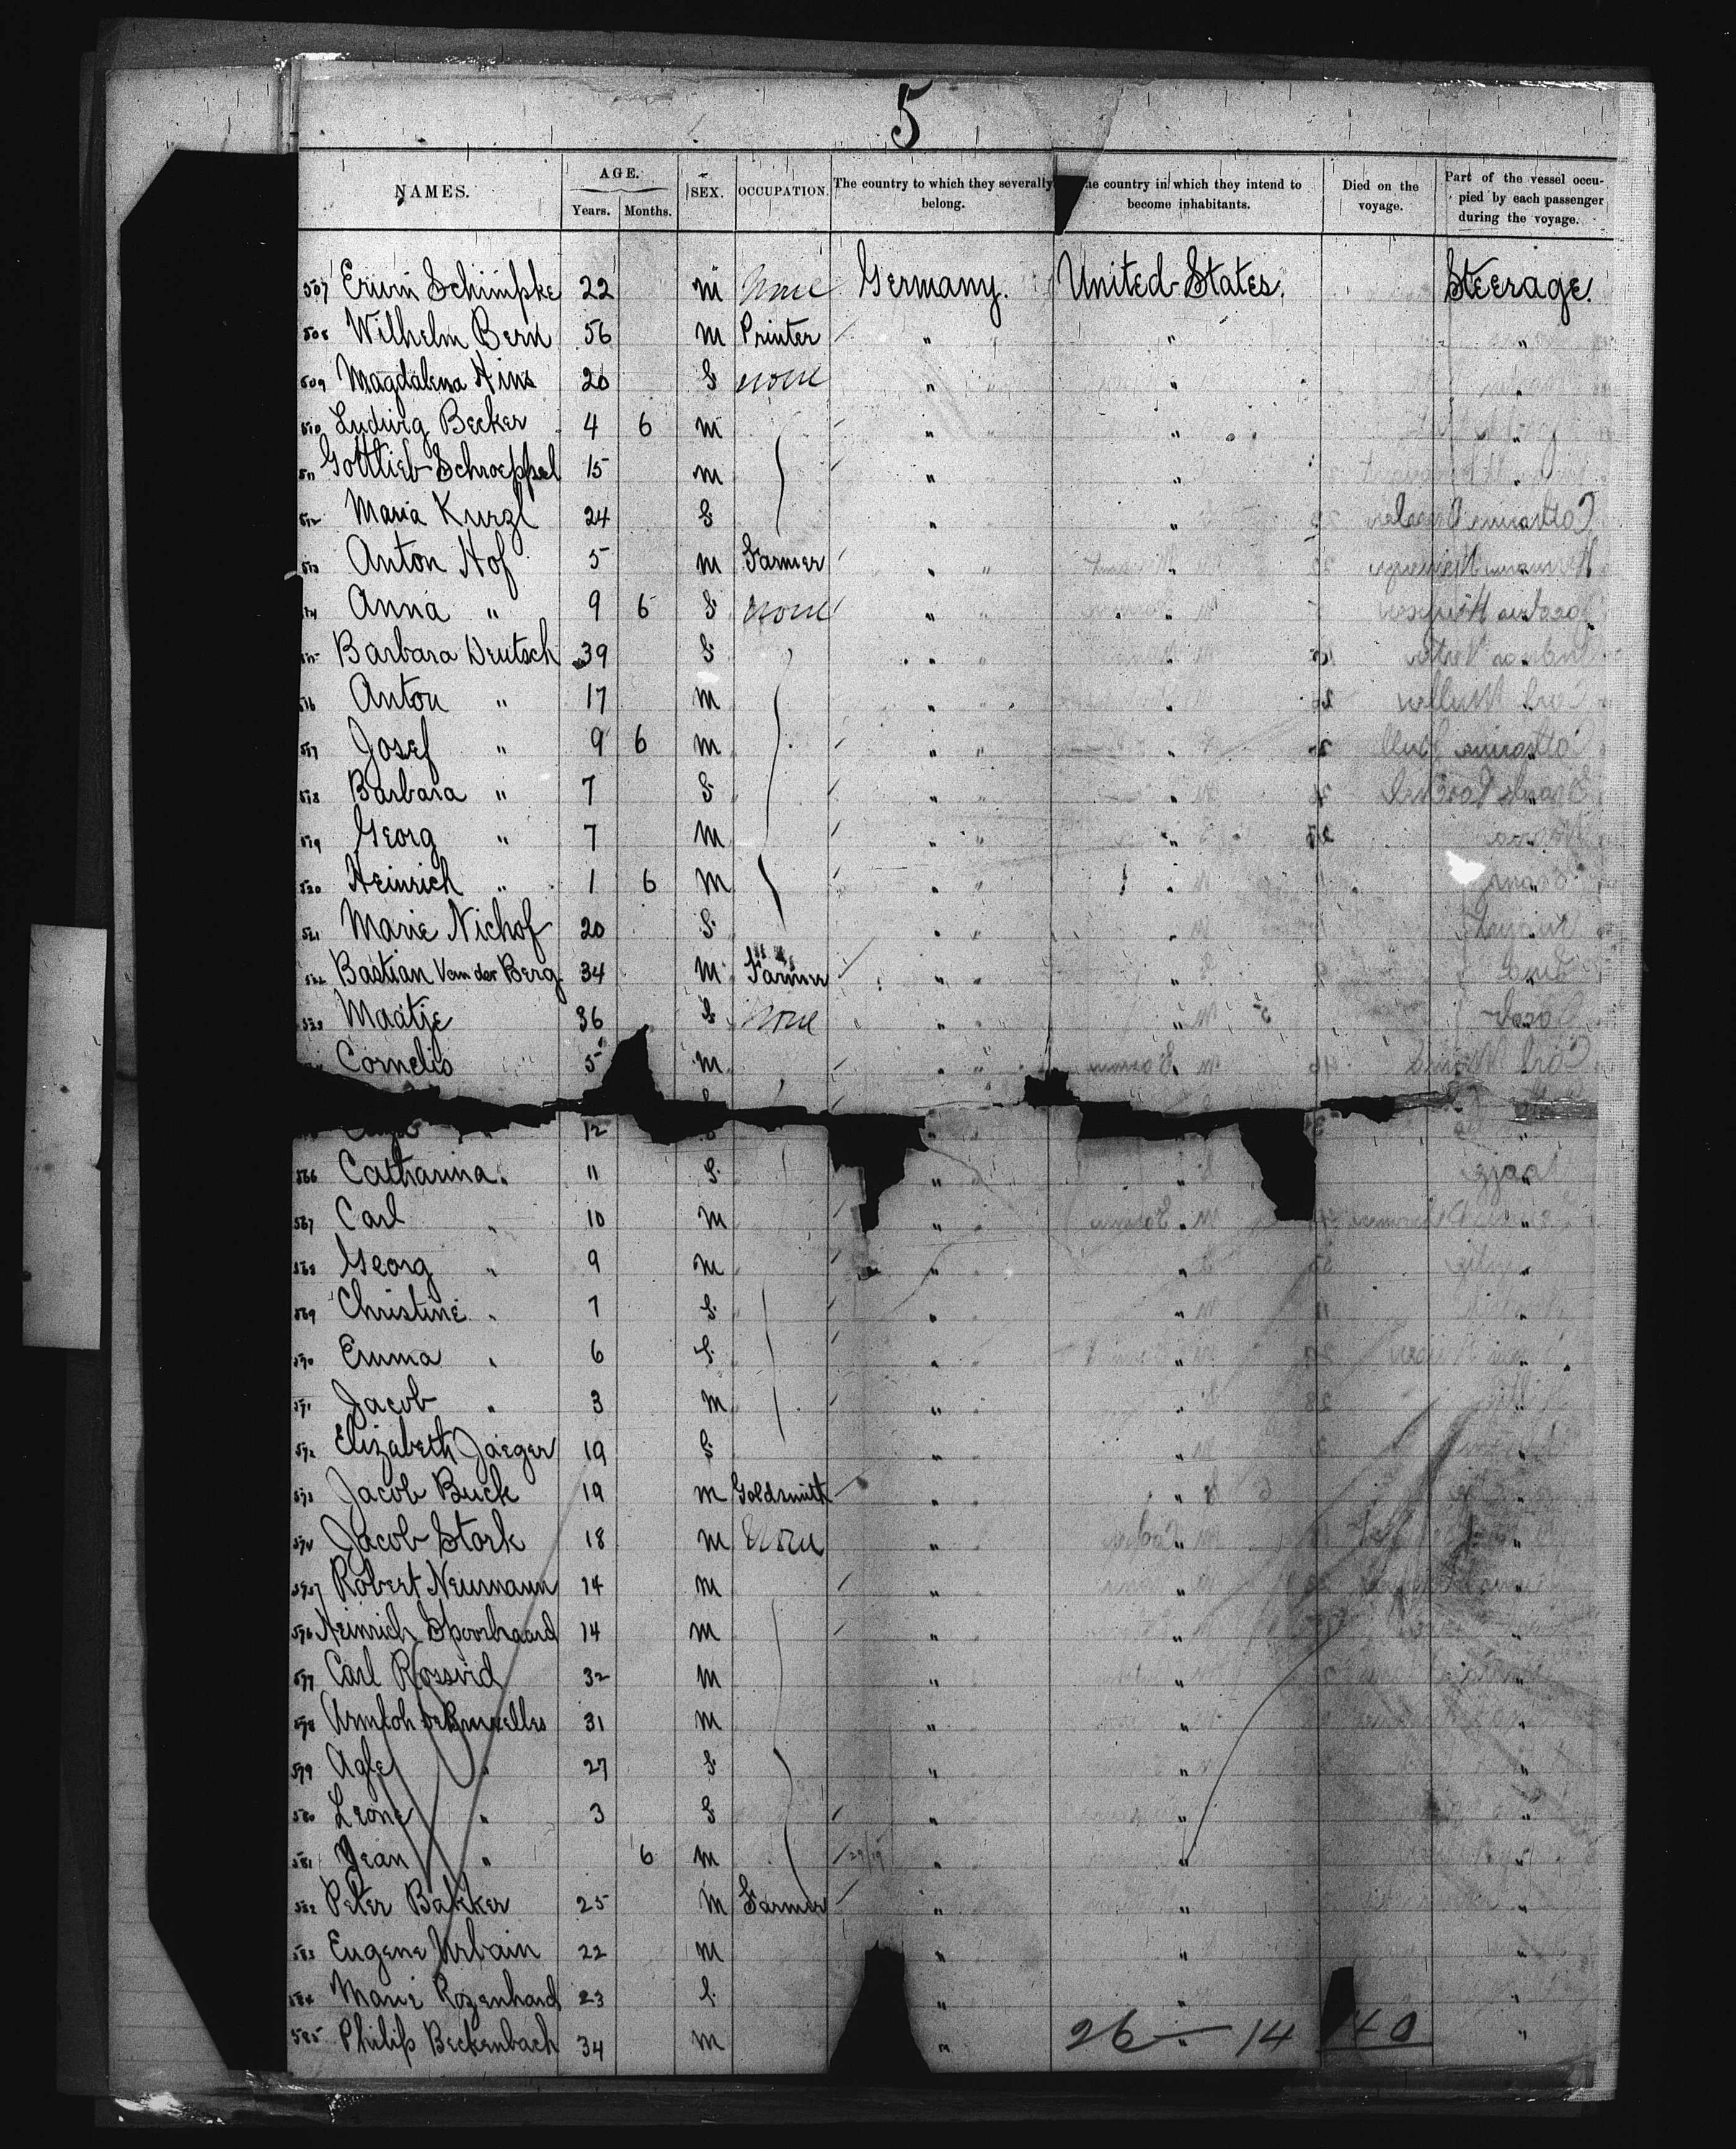 5
NAMES. AGE. Years. Months. SEX. OCCUPATION. The country to which they severally belong. he country in which they intend to become inhabitants. Died on the voyage. Part of the vessel occupied by each passenger during the voyage.
507 Erwin Schimpke 22 M None Germany. United-States. Steerage.
508 Wilhelm Bern 56 M Printer " " "
509 Magdalena Hins 20 F none " " "
510 Ludwig Becker 4 6 M " " "
511 Gottlieb Schroeppel 15 M " " "
512 Maria Kurzl 24 F " " "
513 Anton Hof 5 M Farmer " " "
514 Anna " 9 6 F none " " "
515 Barbara Deutsch 39 F " " "
516 Anton " 17 M " " "
517 Josef " 9 6 M " " "
518 Barbara " 7 F " " "
519 Georg " 7 M " " "
520 Heinrich " 1 6 M " " "
521 Marie Nichof 20 F " " "
522 Bastian Van der Berg 34 M Farmer " " "
523 Maatje 36 F None " " "
Cornelis 5 M " " "
12 " "
566 Catharina " 11 F " " "
567 Carl " 10 M " " "
568 Georg " 9 M " " "
569 Christine " 7 F " " "
570 Emma " 6 F " " "
571 Jacob " 3 M " " "
572 Elizabeth Jaeger 19 F " " "
573 Jacob Buck 19 M Goldsmith " " "
574 Jacob Stork 18 M None " " "
575 Robert Neumann 14 M " " "
576 Heinrich 14 M " " "
577 Carl Rossvid 32 M " " "
578 de Bruxelles 31 M " " "
579 Agle " 27 F " " "
580 Leone " 3 F " " "
581 Jean " 6 M " " "
582 Peter Bakker 25 M Farmer " " "
583 Eugene Urbain 22 M " " "
584 Marie Rozenhard 23 F " " "
585 Philip Beckenbach 34 M " " "
26 — 14 140